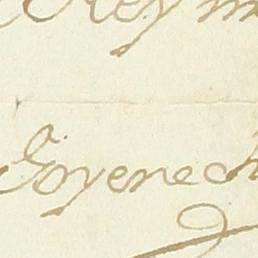 Rey m
Goyenech